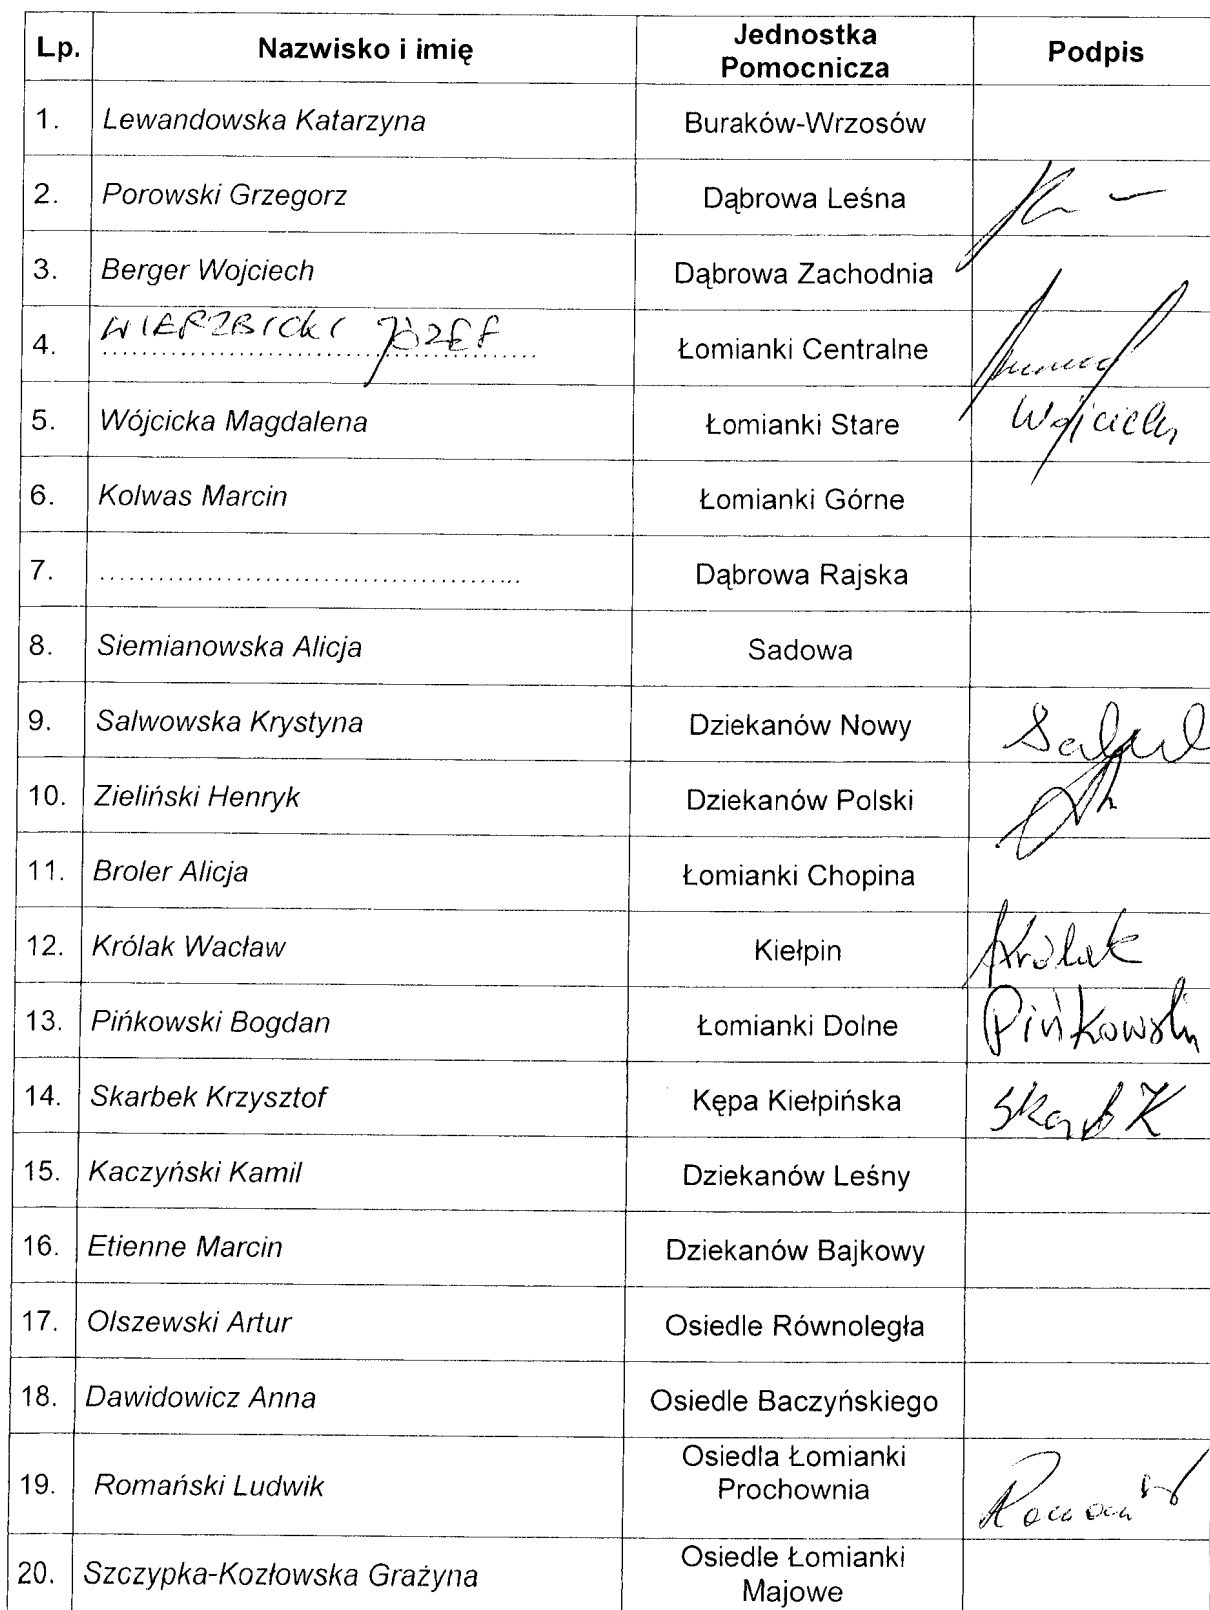 Lp. Nazwisko i imię Jednostka Pomocnicza Podpis
1. Lewandowska Katarzyna Buraków-Wrzosów
2. Porowski Grzegorz Dąbrowa Leśna
3. Berger Wojciech Dąbrowa Zachodnia
4. WIERZBICKI JÓZEF Łomianki Centralne
5. Wójcicka Magdalena Łomianki Stare
6. Kolwas Marcin Łomianki Górne
7. ........................................... Dąbrowa Rajska
8. Siemianowska Alicja Sadowa
9. Salwowska Krystyna Dziekanów Nowy
10. Zieliński Henryk Dziekanów Polski
11. Broler Alicja Łomianki Chopina
12. Królak Wacław Kiełpin Królak
13. Pińkowski Bogdan Łomianki Dolne Pińkowski
14. Skarbek Krzysztof Kępa Kiełpińska
15. Kaczyński Kamil Dziekanów Leśny
16. Etienne Marcin Dziekanów Bajkowy
17. Olszewski Artur Osiedle Równoległa
18. Dawidowicz Anna Osiedle Baczyńskiego
19. Romański Ludwik Osiedla Łomianki Prochownia
20. Szczypka-Kozłowska Grażyna Osiedle Łomianki Majowe